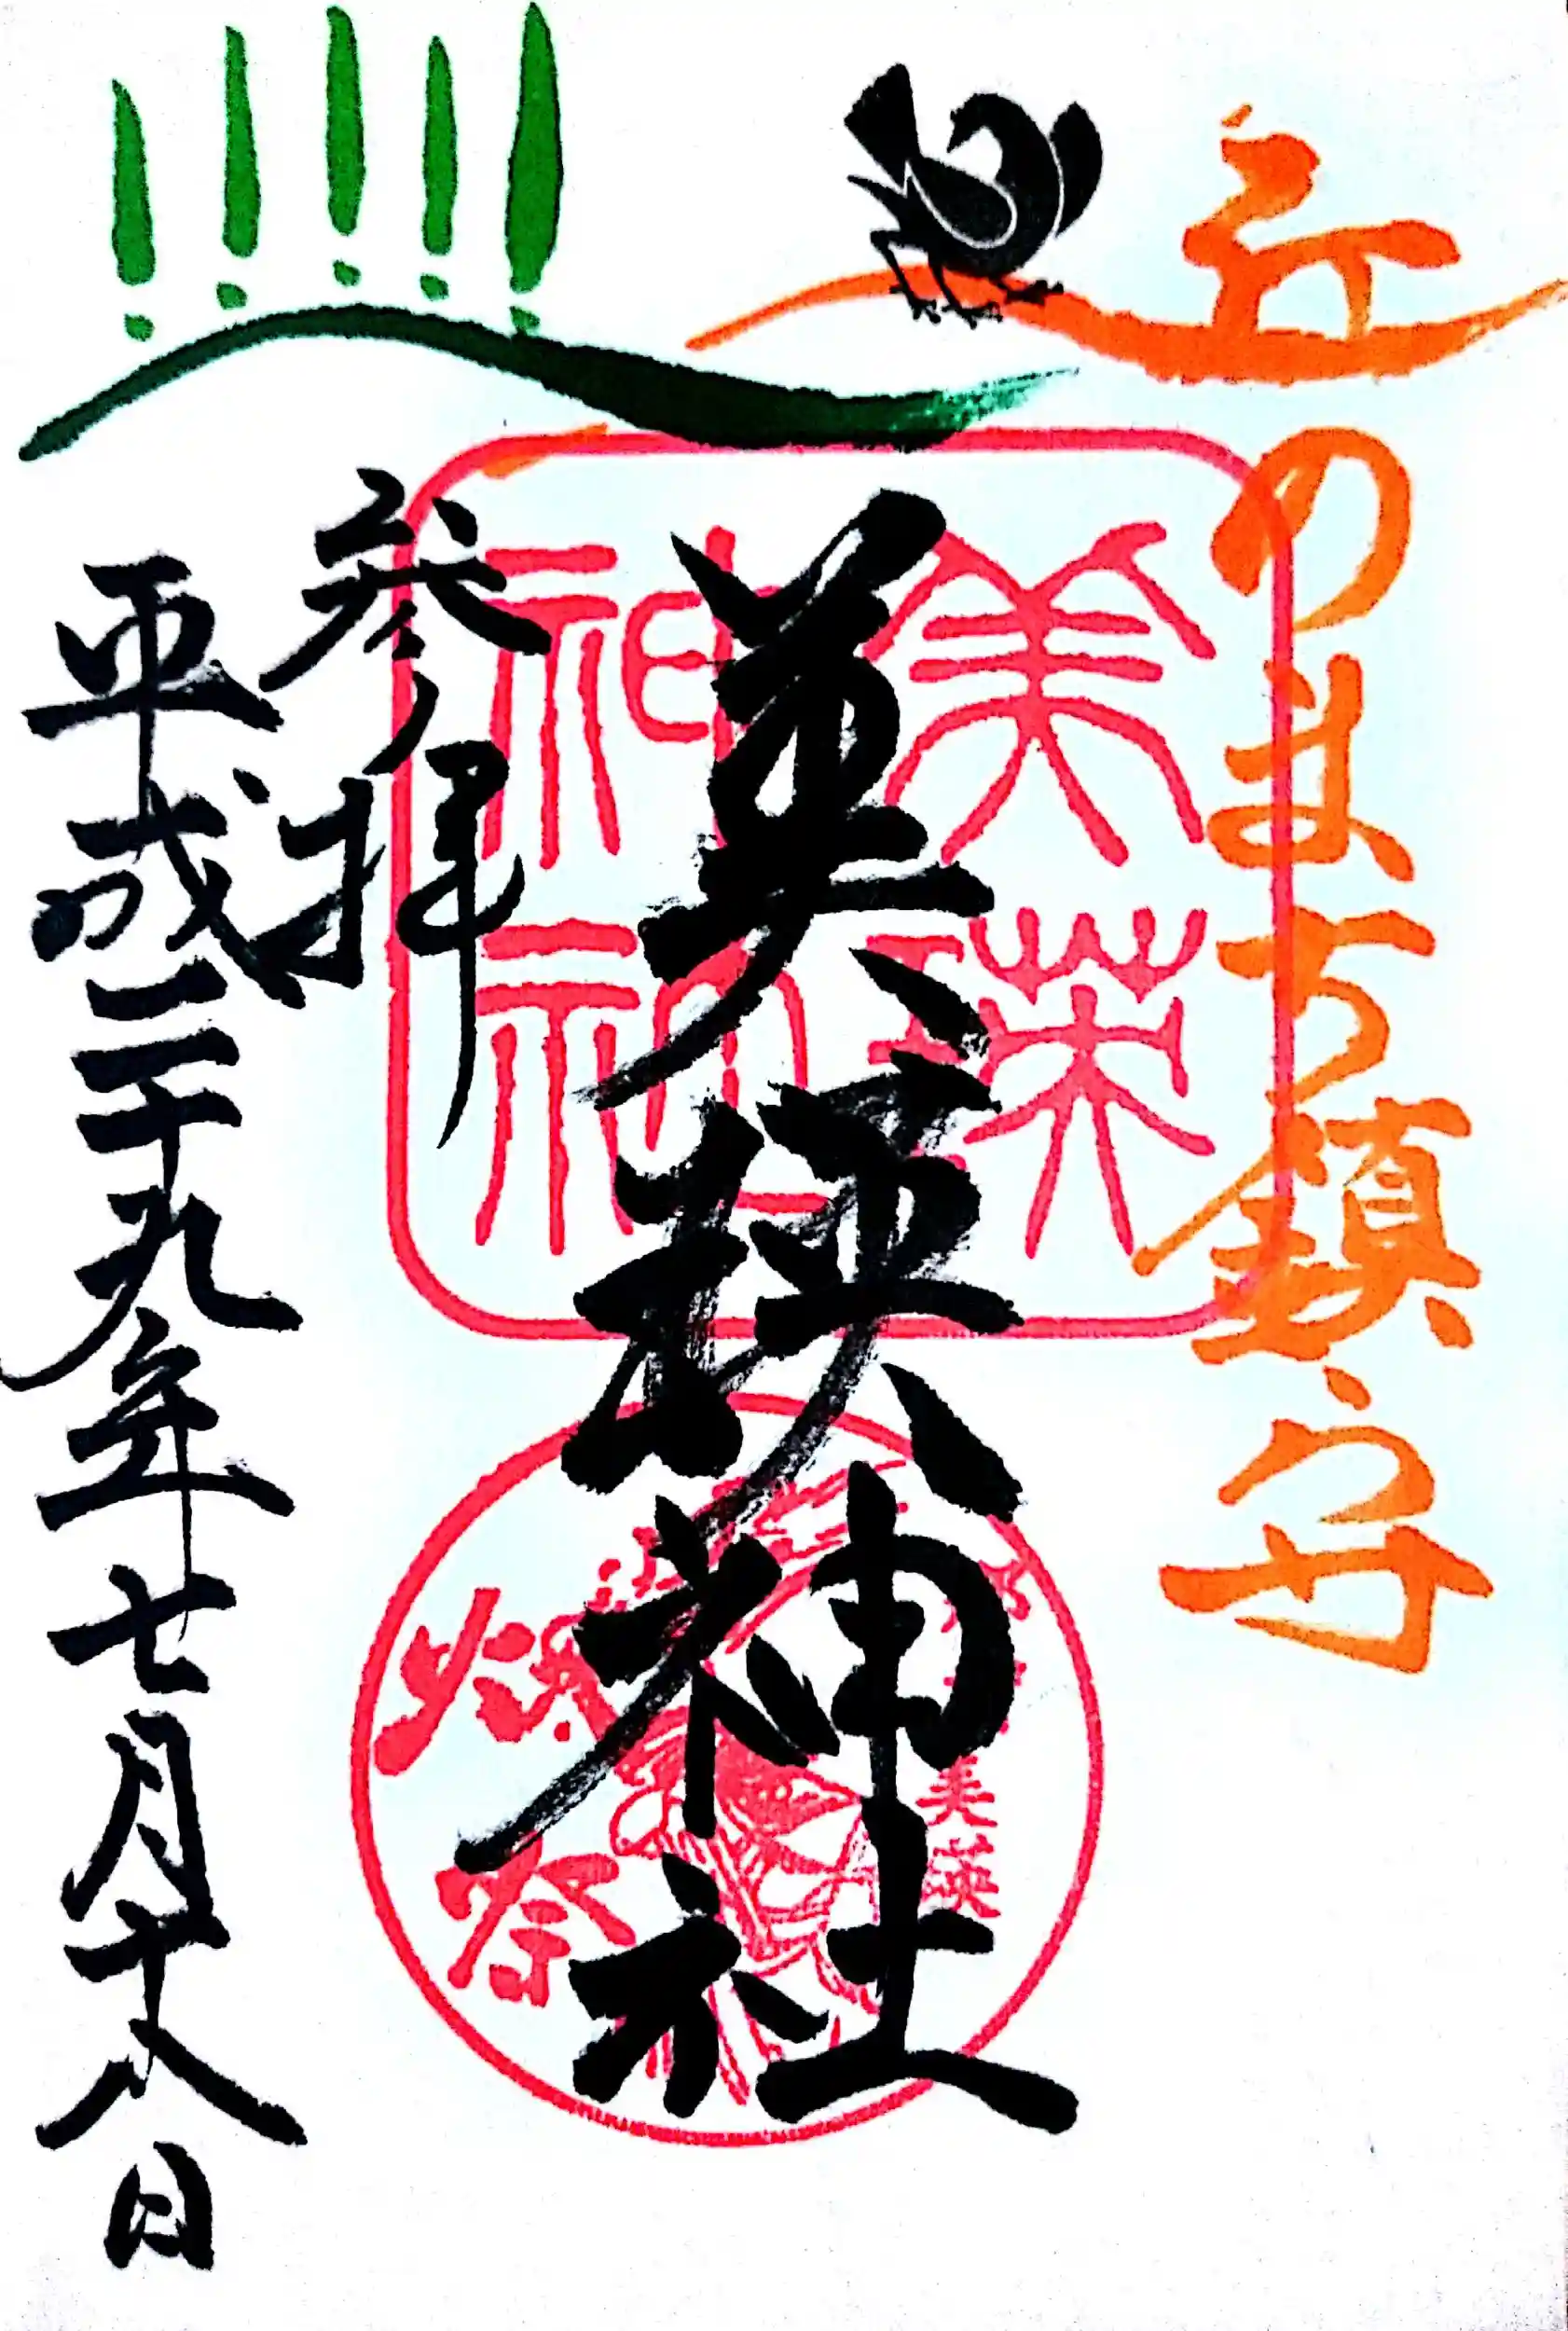 丘のまち鎮守
美瑛神社
美瑛
神社
美瑛
参拝
平成二十九年七月十八日